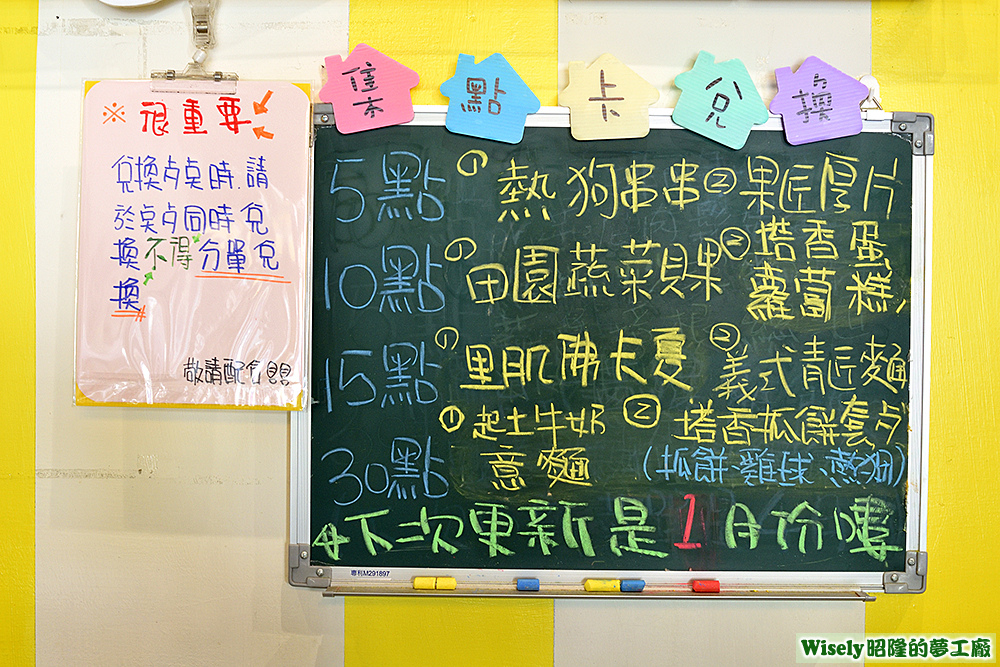 集點卡兌換
※ 很重要
兌換点点時.請
於点点同時兌
換不得分單兌
換#
敬請配合
5點 ① 熱狗串串 ② 果匠厚片
10點 ① 田園蔬菜貝果 ② 塔香蛋
蘿蔔糕
15點 ① 里肌佛卡夏 ② 義式青匠麵
30點 ① 起士牛奶 ② 塔香抓餅套
意麵 (抓餅.雞球.熱狗)
#下次更新是1月份嘍
專利M291897
Wisely 昭隆的夢工廠